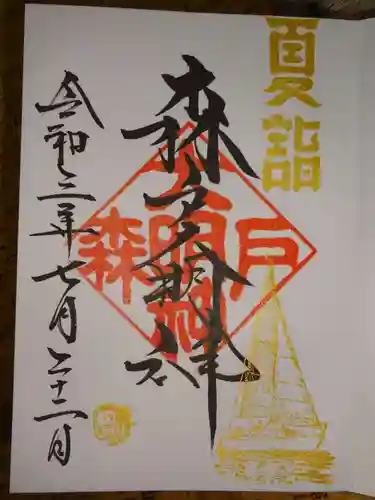 夏詣
森戸大明神
森戸大明神
令和三年七月二十二日